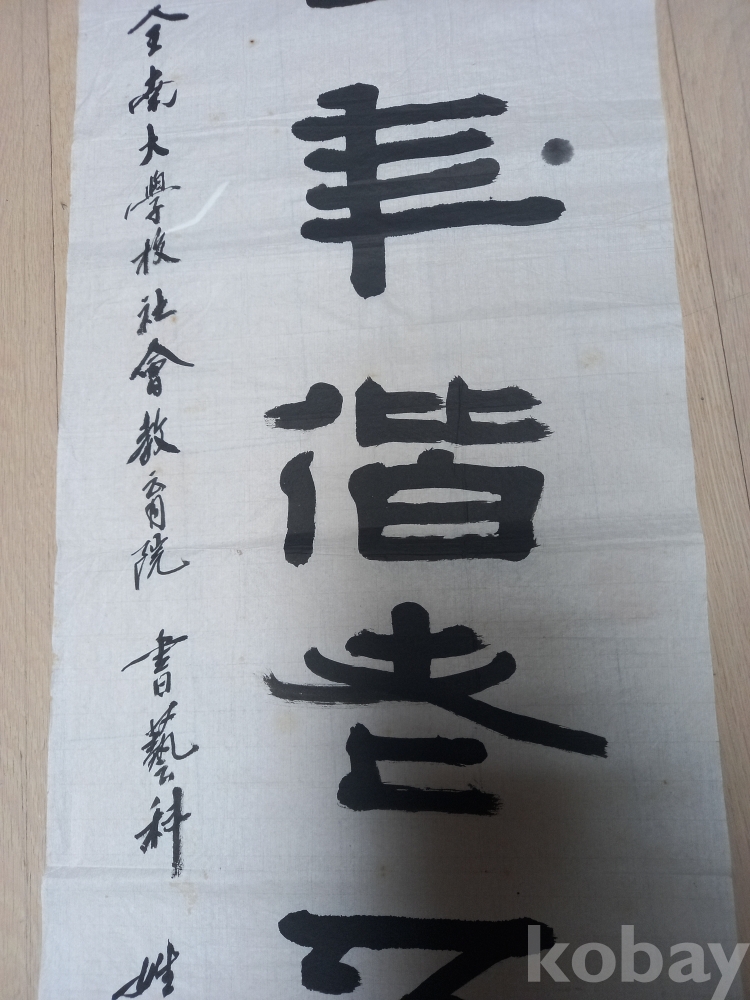 年偕老
全南大學校社會教育院 書藝科 姓
kobay